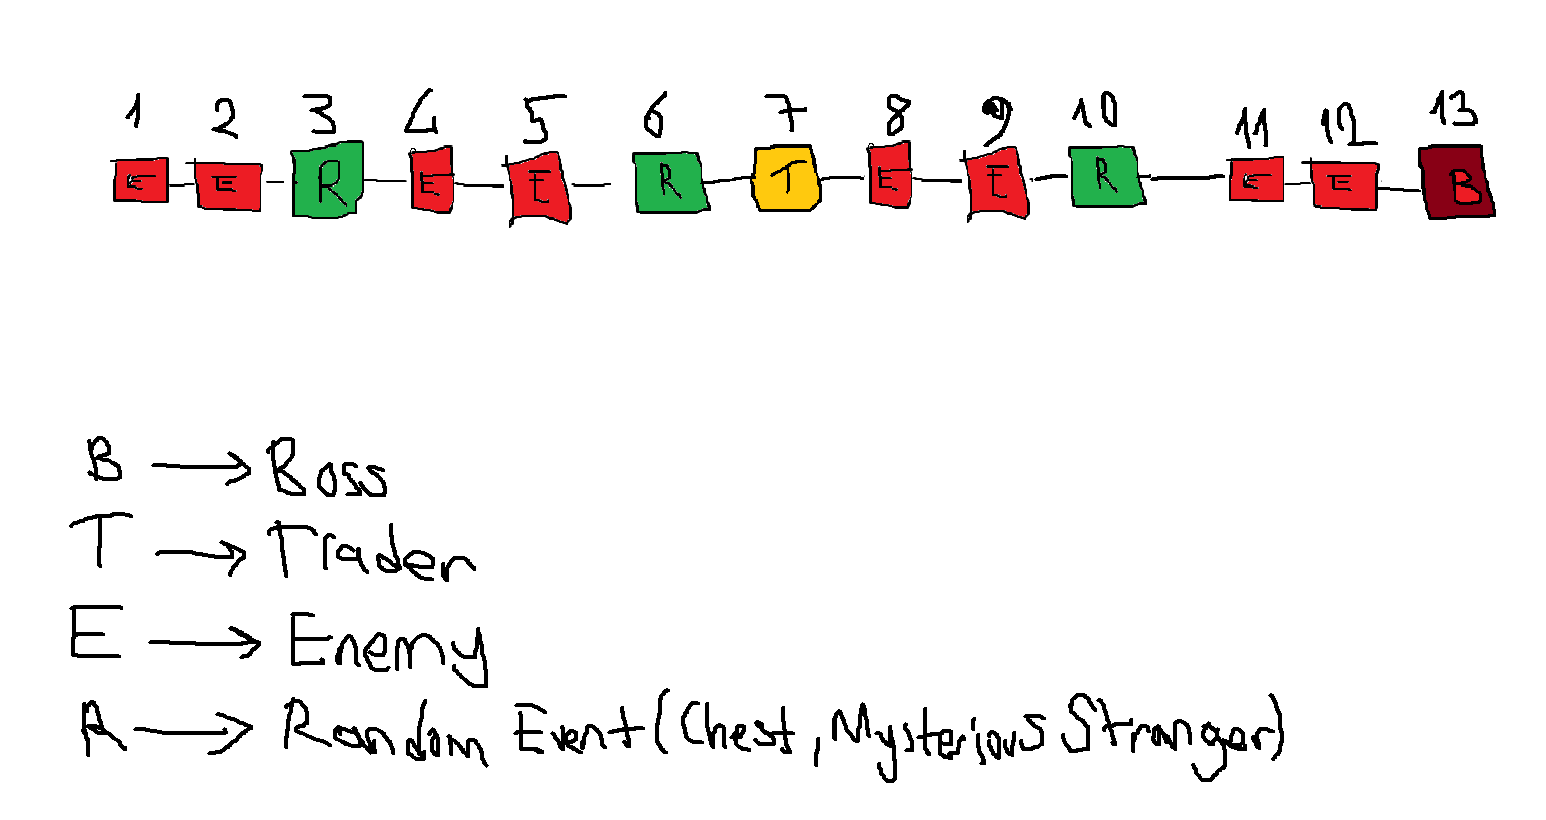 1 2 3 4 5 6 7 8 9 10 11 12 13
E E R E E R T E E R E E B
B → Boss
T → Trader
E → Enemy
R → Random Event (Chest, Mysterious Stranger)